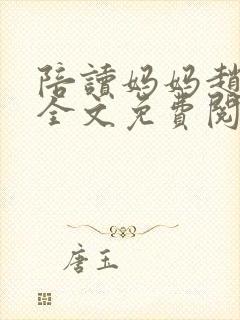 陪讀媽媽趙
全文免費閱
唐玉